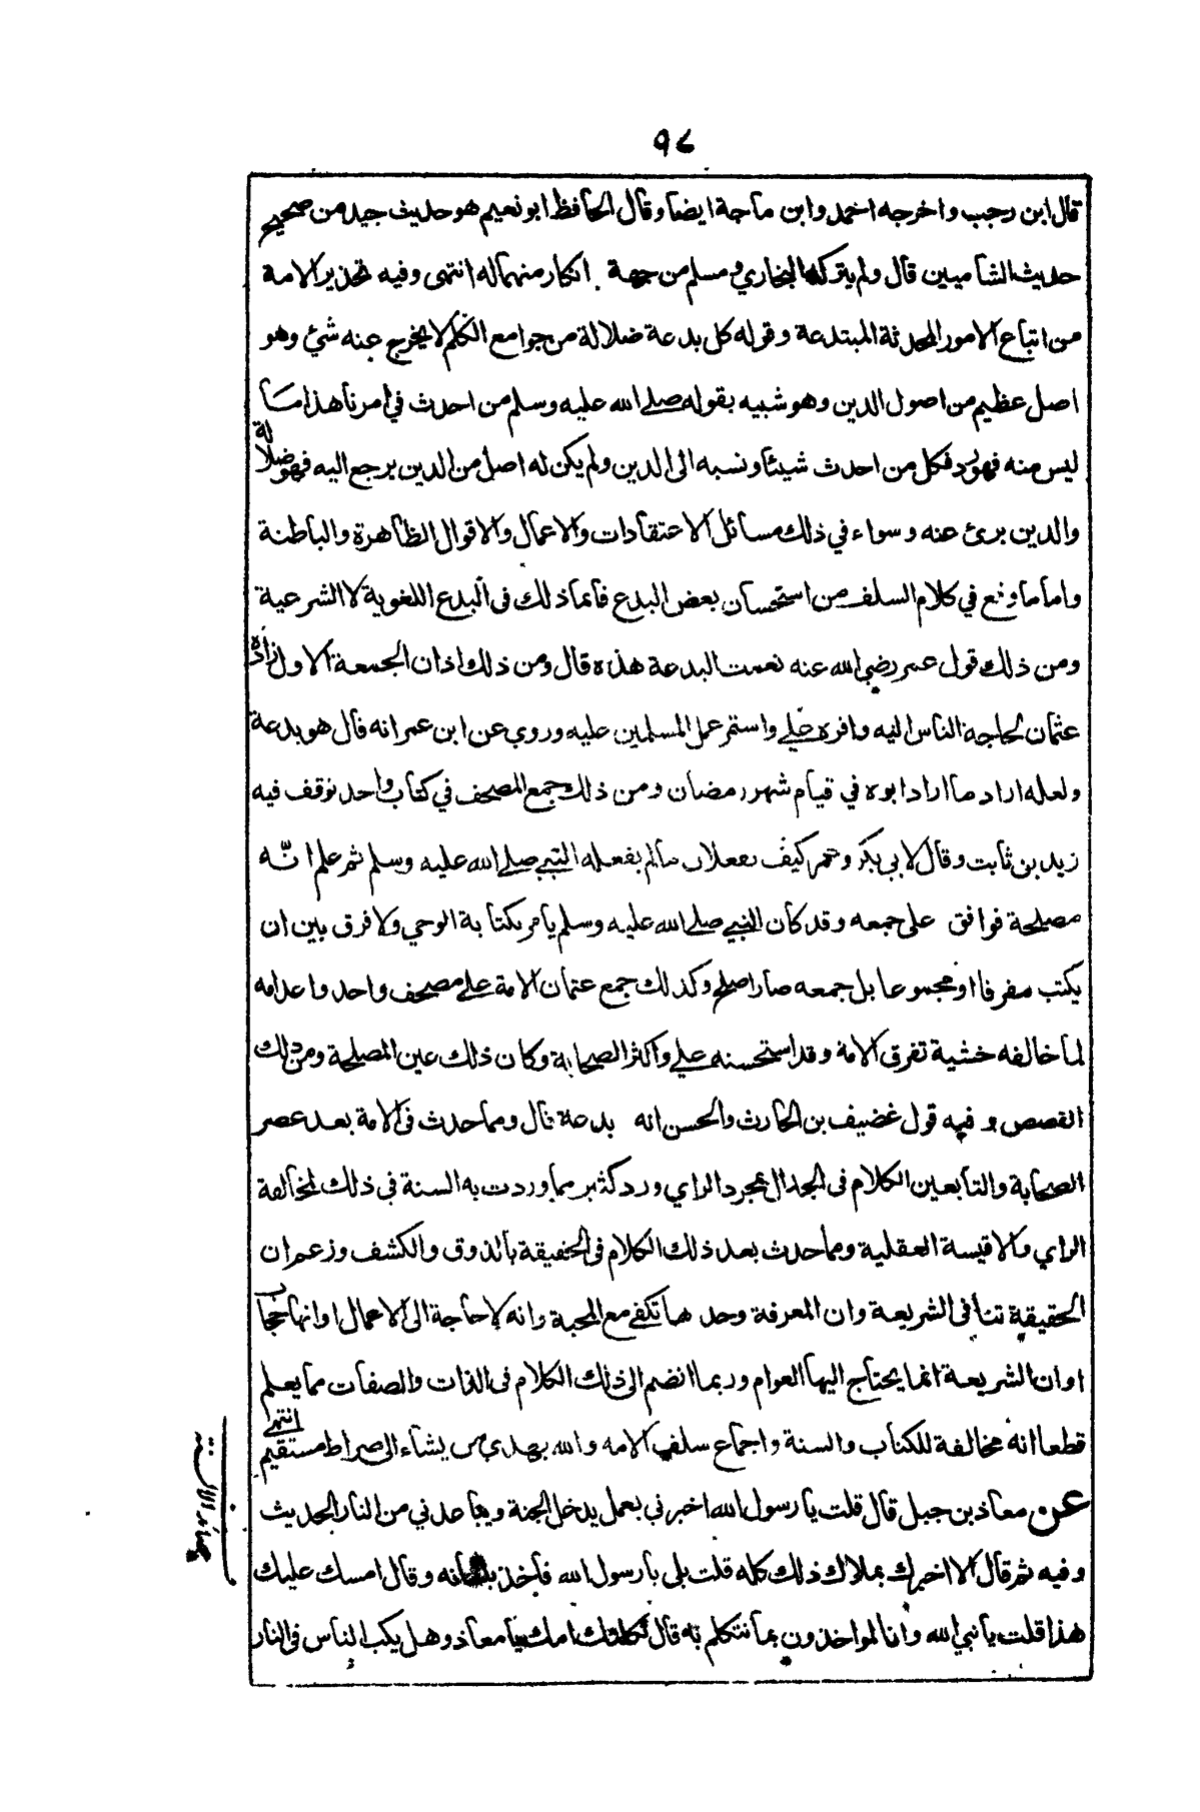 ٩٧
قال ابن رجب واخرجه احمد وابن ماجة ايضا وقال الحافظ ابو نعيم هو حديث جيد من صحيح
حديث الشاميين قال ولم يتركه البخاري ومسلم من جهة انكار منهما له انتهى وفيه تحذير الامة
من اتباع الامور المحدثة المبتدعة وقوله كل بدعة ضلالة من جوامع الكلم لا يخرج عنه شئ وهو
اصل عظيم من اصول الدين وهو شبيه بقوله صلى الله عليه وسلم من احدث في امرنا هذا ما
ليس منه فهو رد فكل من احدث شيئا ونسبه الى الدين ولم يكن له اصل من الدين يرجع اليه فهو ضلالة
والدين برئ عنه وسواء في ذلك مسائل الاعتقادات والاعمال والاقوال الظاهرة والباطنة
واما ما وقع في كلام السلف من استحسان بعض البدع فانما ذلك فى البدع اللغوية لا الشرعية
ومن ذلك قول عمر رضي الله عنه نعمت البدعة هذه قال ومن ذلك اذان الجمعة الاول زاده
عثمان لحاجة الناس اليه واقره علي واستمر عمل المسلمين عليه وروي عن ابن عمر انه قال هو بدعة
ولعله اراد ما اراد ابوه في قيام شهر رمضان ومن ذلك جمع المصحف في كتاب واحد توقف فيه
زيد بن ثابت وقال لابي بكر وعمر كيف تفعلان ما لم يفعله النبي صلى الله عليه وسلم ثم علم انّه
مصلحة فوافق على جمعه وقد كان النبي صلى الله عليه وسلم يأمر بكتابة الوحي ولا فرق بين ان
يكتب مفرقا او مجموعا بل جمعه صار اصلح وكذلك جمع عثمان الامة على مصحف واحد واعدامه
لما خالفه خشية تفرق الامة وقد استحسنه علي واكثر الصحابة وكان ذلك عين المصلحة ومن ذلك
القصص وفيه قول غضيف بن الحارث والحسن انه بدعة قال ومما حدث فى الامة بعد عصر
الصحابة والتابعين الكلام فى الجدال بمجرد الراي ورد كثير مما وردت به السنة في ذلك لمخالفة
الراي والاقيسة العقلية ومما حدث بعد ذلك الكلام فى الحقيقة بالذوق والكشف وزعم ان
الحقيقة تنافى الشريعة وان المعرفة وحدها تكفي مع المحبة وانه لا حاجة الى الاعمال او انها حجاب
او ان الشريعة انما يحتاج اليها العوام وربما انضم الى ذلك الكلام فى الذات والصفات مما يعلم
قطعا انه مخالفة للكتاب والسنة واجماع سلف الامه والله يهدي من يشاء الى صراط مستقيم انتهى
عن معاذ بن جبل قال قلت يا رسول الله اخبرني بعمل يدخل الجنة ويباعدني من النار الحديث
وفيه ثم قال الا اخبرك بملاك ذلك كله قلت بلى يا رسول الله فاخذ بلسانه وقال امسك عليك
هذا قلت يا نبي الله وانا لمواخذون بما نتكلم به قال ثكلتك امك يا معاذ وهل يكب الناس فى النار